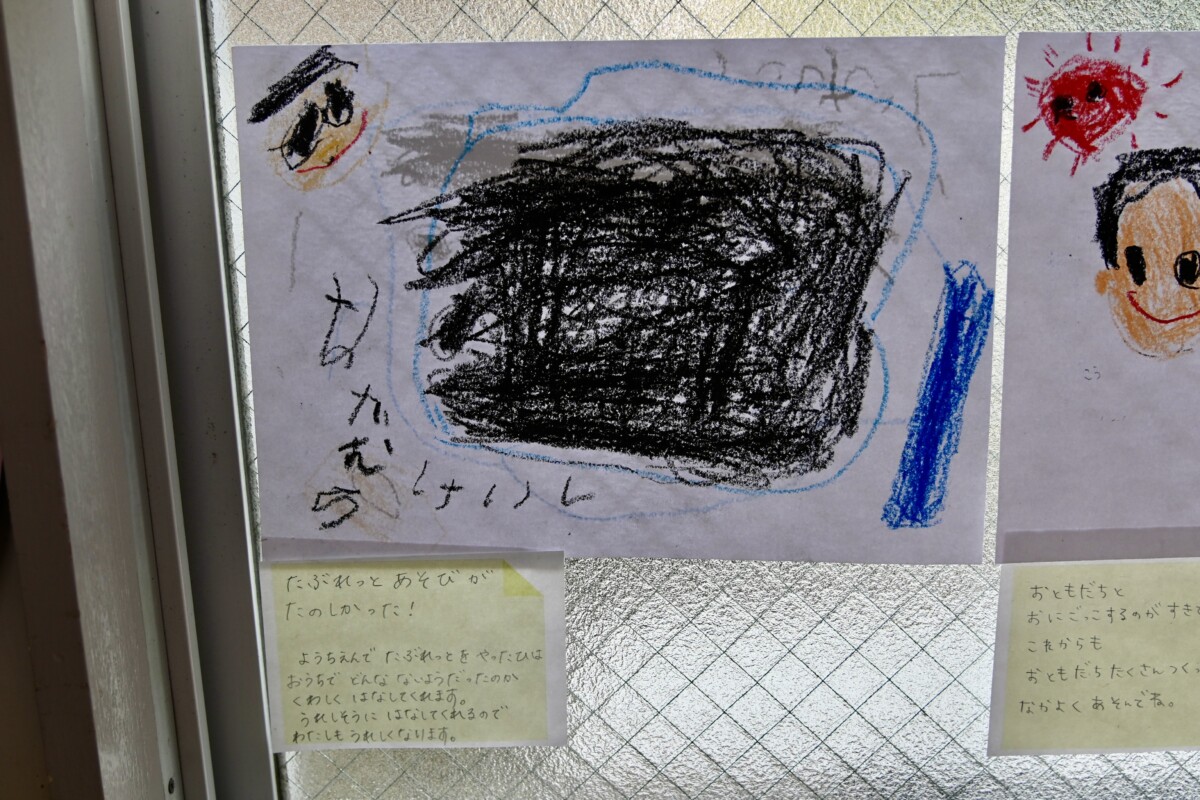 なかむら
けいし
たぶれっと あそびが
たのしかった!
ようちえんで たぶれっとを やったひは
おうちで どんな ないようだったのか
くわしく はなしてくれます。
うれしそうに はなしてくれるので
わたしも うれしくなります。
こう
おともだちと
おにごっこするのが すき
これからも
おともだち たくさん つく
なかよく あそんでね。